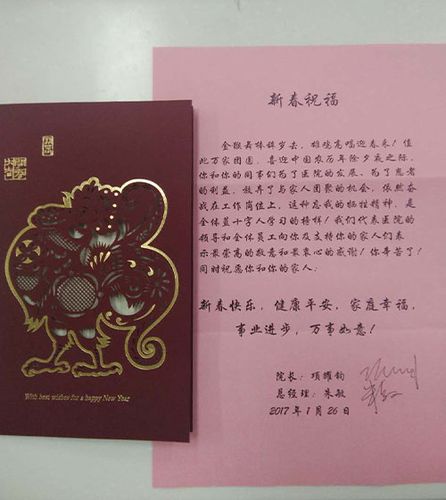 With best wishes for a happy New Year
新春祝福
金猴舞棒辞岁去，雄鸡高唱迎春来！值
此万家团圆、喜迎中国农历年除夕夜之际，
你和你的同事们为了医院的发展、为了患者
的利益，放弃了与家人团聚的机会，依然奋
战在工作岗位上，这种忘我的牺牲精神，是
全体蓝十字人学习的榜样！我们代表医院的
领导和全体员工向你及支持你的家人们表
示最崇高的敬意和最衷心的感谢！你辛苦了！
同时祝愿你和你的家人：
新春快乐，健康平安，家庭幸福，
事业进步，万事如意！
院长：项耀钧
总经理：朱敏
2017年1月26日